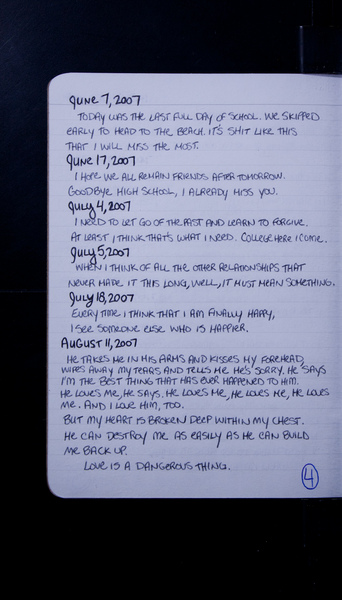 June 7, 2007
Today was the last full day of school. We skipped
early to head to the beach. It's shit like this
that I will miss the most.
June 17, 2007
I hope we all remain friends after tomorrow.
Goodbye high school, I already miss you.
July 4, 2007
I need to let go of the past and learn to forgive.
At least, I think that's what I need. College here I come.
July 5, 2007
When I think of all the other relationships that
never made it this long, well, it must mean something.
July 18, 2007
Every time I think that I am finally happy,
I see someone else who is happier.
August 11, 2007
He takes me in his arms and kisses my forehead,
wipes away my tears and tells me he's sorry. He says
I'm the best thing that has ever happened to him.
He loves me, he says. He loves me, he loves me, he loves
me. And I love him, too.
But my heart is broken deep within my chest.
He can destroy me as easily as he can build
me back up.
Love is a dangerous thing.
4